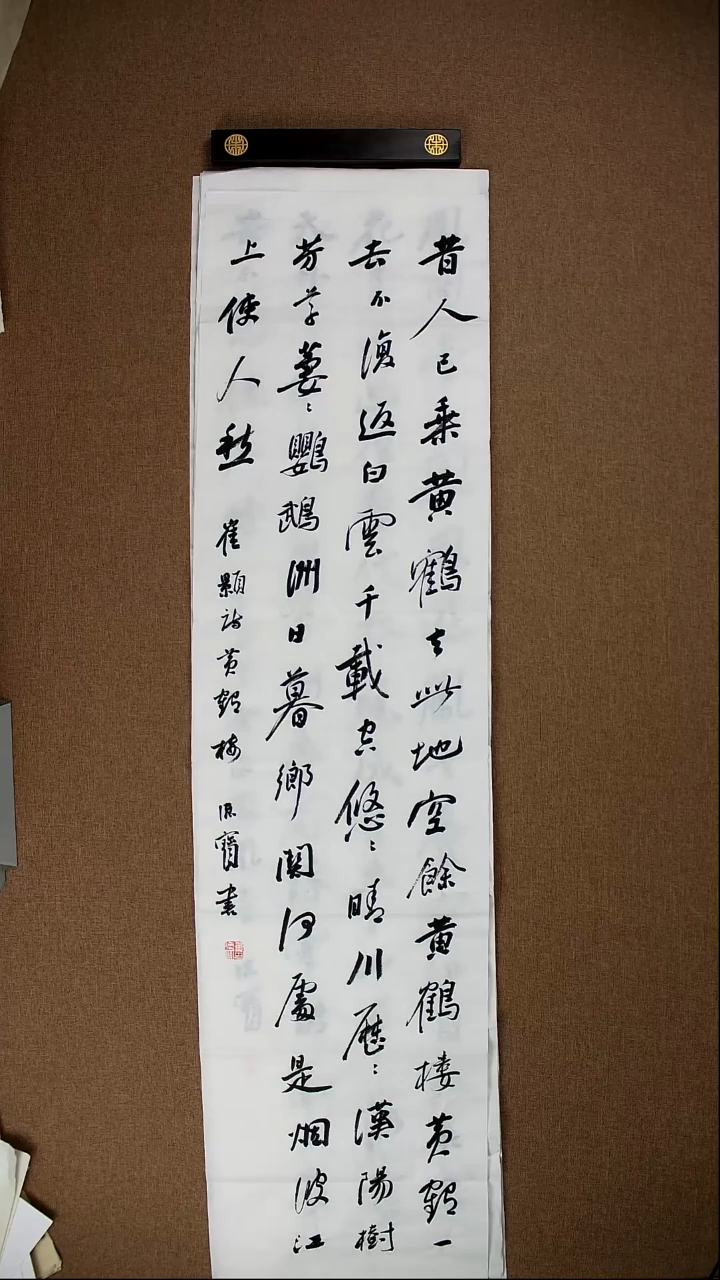 昔人已乘黄鶴去此地空餘黄鶴楼黄鶴一
去不復返白雲千載空悠〻晴川歷〻漢陽樹
芳草萋〻鸚鵡洲日暮鄉關何處是烟波江
上使人愁
崔顥詩黄鶴楼 寶書